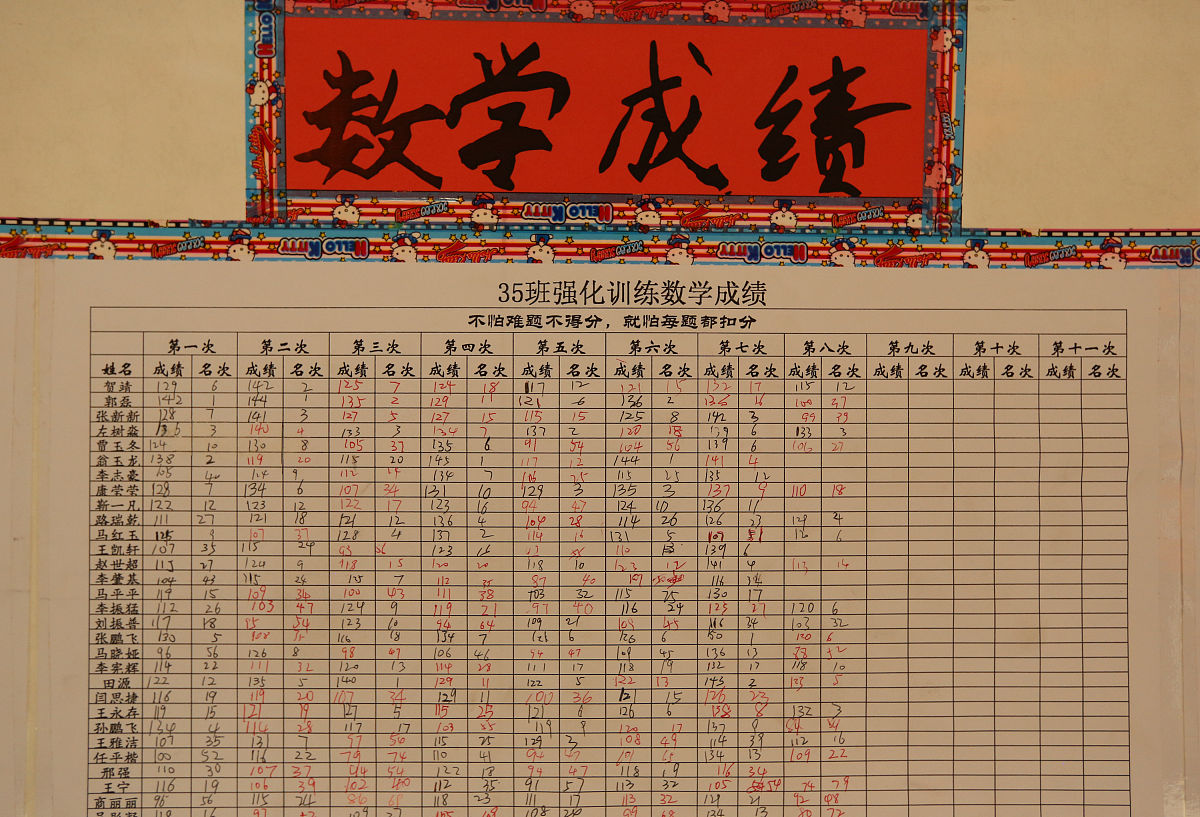 数学成绩
HELLO KITTY
35班强化训练数学成绩
不怕难题不得分，就怕每题都扣分
第一次 第二次 第三次 第四次 第五次 第六次 第七次 第八次 第九次 第十次 第十一次
姓名 成绩 名次 成绩 名次 成绩 名次 成绩 名次 成绩 名次 成绩 名次 成绩 名次 成绩 名次 成绩 名次 成绩 名次 成绩 名次
贺靖 129 6 142 2 125 7 124 18 117 12 121 15 132 17 115 12
郭磊 142 1 144 1 135 2 129 11 121 6 136 2 136 16 100 37
张新新 128 7 141 3 127 5 127 15 115 15 125 8 142 3 99 39
左树淼 3 140 4 133 3 134 7 137 2 120 18 139 6 133 3
贾玉冬 124 10 130 8 105 37 135 6 91 54 104 56 139 6 106 27
翁玉龙 138 2 119 20 115 20 145 1 117 12 144 1 141 4
李志豪 105 40 124 9 112 134 7 106 25 115 25 135 12
康荣荣 128 7 134 6 107 34 131 10 129 3 135 3 137 9 110 18
靳一凡 122 12 123 12 122 17 123 16 94 47 124 10 136 11
路瑞乾 111 27 121 18 121 12 136 4 104 28 114 26 126 23 129 4
马红玉 125 9 107 37 128 4 137 2 114 16 131 5 107 51 120 6
王凯轩 107 35 115 24 93 56 123 16 110 139 6
赵世超 115 27 124 9 118 15 120 20 118 10 123 12 141 4 113 14
李肇基 104 43 115 24 125 7 112 35 87 60 107 116 34
马平平 119 15 109 36 100 43 111 38 103 32 115 25 130 17
李振猛 112 26 103 47 124 9 119 21 97 40 116 24 123 27 120 6
刘振普 117 18 95 54 123 10 94 64 109 21 108 45 116 34 103 32
张鹏飞 130 5 108 116 18 134 7 121 6 126 6 150 1 120 6
马晓娅 96 56 126 8 98 49 106 46 94 47 109 45 136 13 88 52
李宪辉 114 22 111 32 120 13 114 28 111 17 118 19 132 17 118 10
田源 122 12 135 5 140 1 129 11 122 5 122 13 143 2 123 5
闫思捷 116 19 119 20 107 34 129 11 100 36 121 15 126 23
王永存 119 15 121 19 127 5 115 25 121 6 126 6 138 8 132 3
孙鹏飞 134 4 114 28 117 17 103 55 119 9 120 17 137 9 84
王雅洁 107 35 131 7 97 50 115 25 129 3 108 49 114 39 112 16
任平楷 100 52 116 22 79 74 110 41 94 47 101 65 134 13 109 22
邢强 110 30 107 37 94 54 122 18 94 47 118 19 116 34
王宁 116 19 106 39 102 40 112 35 91 57 113 32 105 54 74 79
商丽丽 96 56 115 24 86 68 118 23 111 17 113 32 129 21 92 48